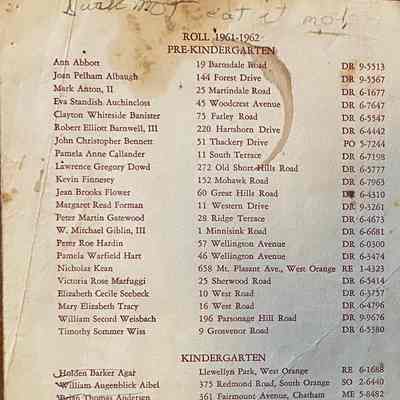 eat it
ROLL 1961-1962
PRE-KINDERGARTEN
Ann Abbott 19 Barnsdale Road DR 9-5513
Joan Pelham Albaugh 144 Forest Drive DR 9-5567
Mark Anton, II 25 Martindale Road DR 6-1677
Eva Standish Auchincloss 45 Woodcrest Avenue DR 6-7647
Clayton Whiteside Banister 75 Farley Road DR 6-5547
Robert Elliott Barnwell, III 220 Hartshorn Drive DR 6-4442
John Christopher Bennett 51 Thackery Drive PO 5-7244
Pamela Anne Callander 11 South Terrace DR 6-7198
Lawrence Gregory Dowd 272 Old Short Hills Road DR 6-5777
Kevin Finnesey 152 Mohawk Road DR 6-7963
Jean Brooks Flower 60 Great Hills Road DR 6-4310
Margaret Read Forman 11 Western Drive DR 9-3261
Peter Martin Gatewood 28 Ridge Terrace DR 6-4673
W. Mitchael Giblin, III 1 Minnisink Road DR 6-6681
Peter Roe Hardin 57 Wellington Avenue DR 6-0300
Pamela Warfield Hart 46 Wellington Avenue DR 6-3474
Nicholas Kean 658 Mt. Pleasant Ave., West Orange RE 1-4323
Victoria Rose Marfuggi 25 Sherwood Road DR 6-5414
Elizabeth Cecile Seebeck 10 West Road DR 6-3757
Mary Elizabeth Tracy 16 West Road DR 6-4796
William Secord Weisbach 196 Parsonage Hill Road DR 9-9676
Timothy Sommer Wiss 9 Grosvenor Road DR 6-5580
KINDERGARTEN
Holden Barker Agar Llewellyn Park, West Orange RE 6-1688
William Augenblick Aibel 375 Redmond Road, South Orange SO 2-6440
Brian Thomas Andersen 361 Fairmount Avenue, Chatham ME 5-8482